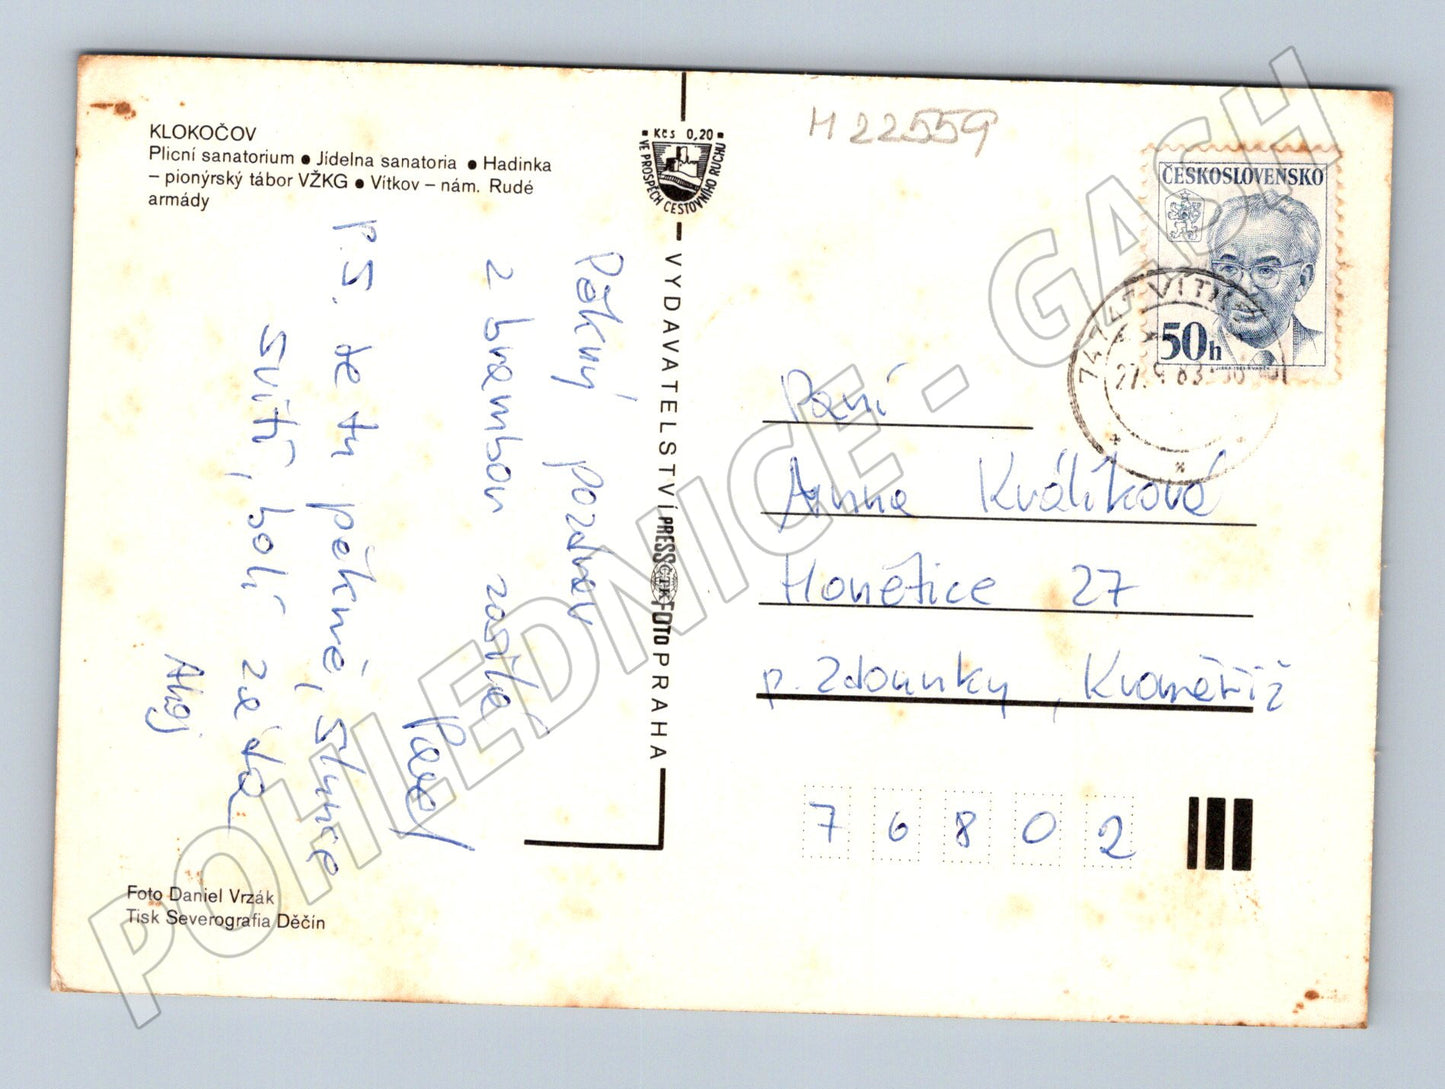 KLOKOČOV
Plicní sanatorium ● Jídelna sanatoria ● Hadinka
– pionýrský tábor VŽKG ● Vítkov – nám. Rudé
armády
Pěkný pozdrav
z brambor zasílá
Pavel
P.S. Je tu pěkně, slunce
svítí, bolí záda
Ahoj
Foto Daniel Vrzák
Tisk Severografia Děčín
Kčs 0,20
VE PROSPĚCH CESTOVNÍHO RUCHU
VYDAVATELSTVÍ PRESSFOTO PRAHA
ČTK
M 22559
ČESKOSLOVENSKO
50h
Paní
Anna Králíková
Honětice 27
p. Zdounky, Kroměříž
76802
POHLEDNICE - GASH